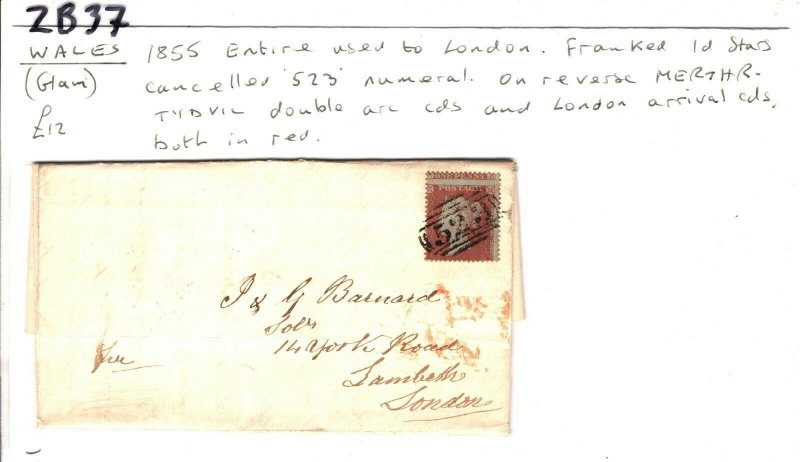 ZB37
WALES 1855 Entire used to London. Franked 1d Stars
(Glam) cancelled '523' numeral. On reverse MERTHR-
£12 TYDVIL double arc cds and London arrival cds,
both in red.
ONE PENNY
POSTAGE
523
J & G Barnard
Solrs
14 York Road
Lambeth
London